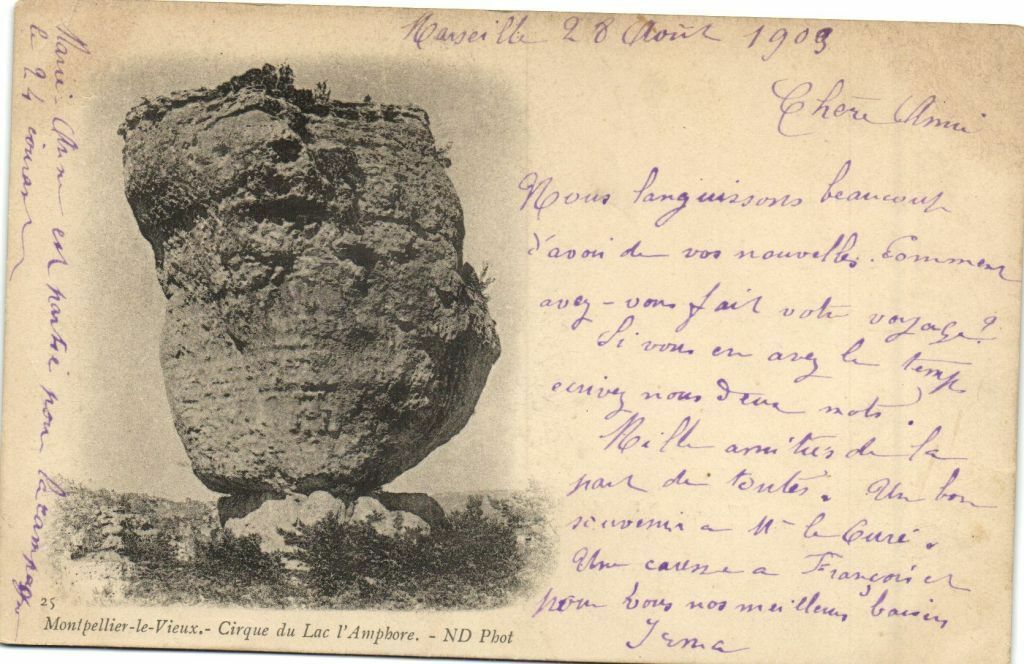 Marseille 28 Août 1903
Chère Amie
Nous languissons beaucoup
d'avoir de vos nouvelles. Comment
avez-vous fait votre voyage?
Si vous en avez le temps
ecrivez nous deux mots.
Mille amitiés de la
part de toutes. Un bon
souvenir a Mr le Curé.
Une caresse a
pour vous nos meilleurs baisers
Irma
Marie-Anne est partie pour la campagne
le 24 courant
25
Montpellier-le-Vieux.- Cirque du Lac l'Amphore. - ND Phot